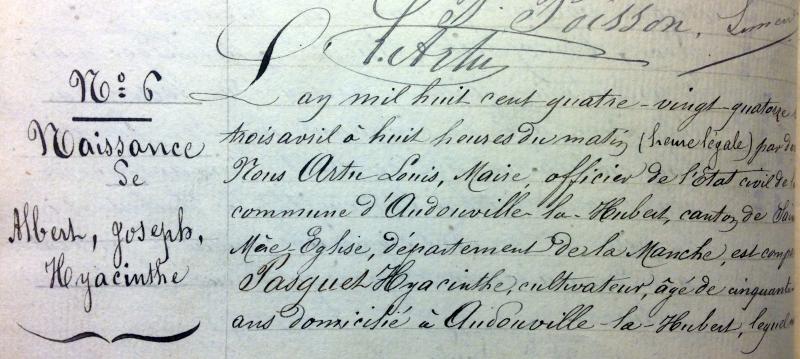 Poisson.
L. Artu
N° 6
Naissance
De
Albert, Joseph,
Hyacinthe
L'an mil huit cent quatre-vingt-quatorze
trois avril à huit heures du matin (heure légale) par de
Nous Artu Louis, Maire, officier de l'Etat civil de
commune d'Audouville-la-Hubert, canton de Sai
Mère Eglise, département de la Manche, est comp
Pasquet Hyacinthe, cultivateur, âgé de cinquante
ans domicilié à Audouville-la-Hubert, lequel